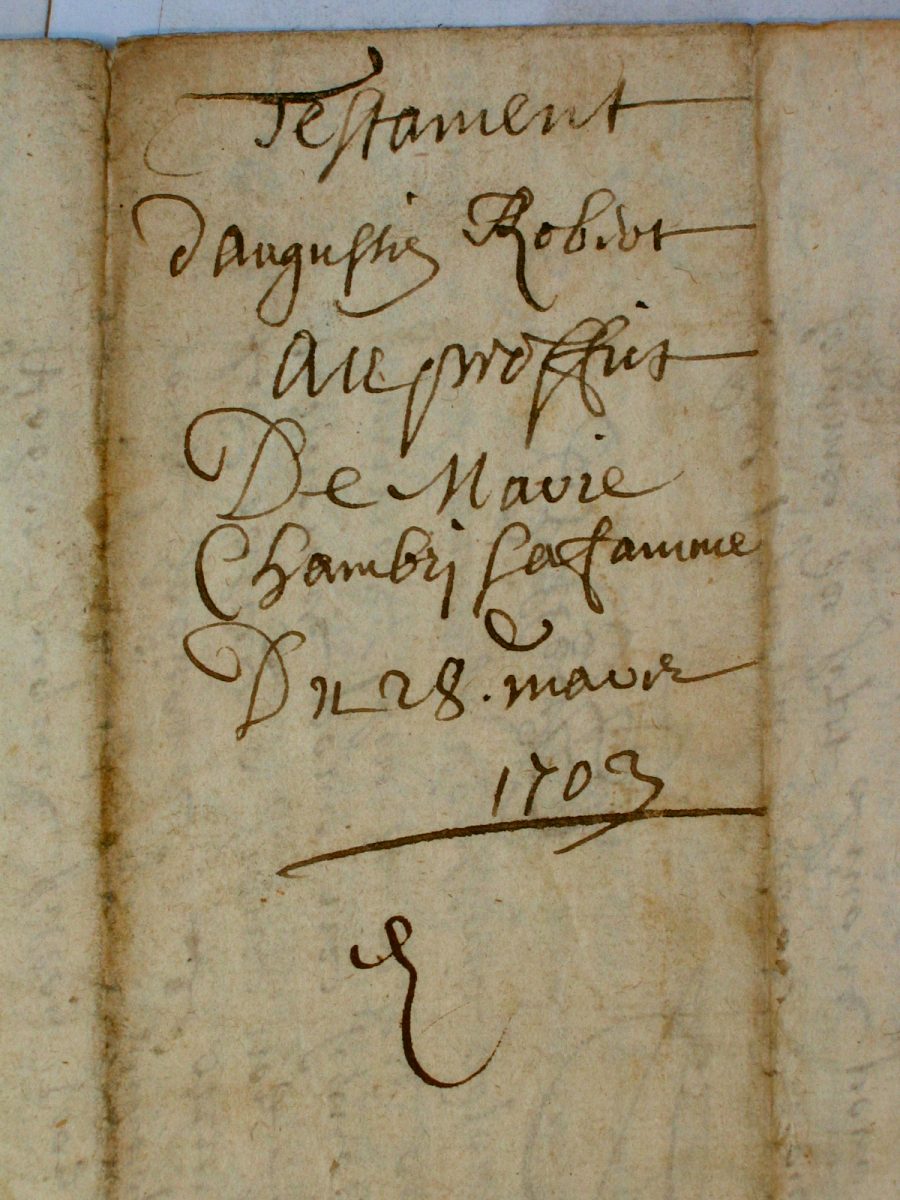 Testament
d'augustin Robert
au proffit
De Marie
Chambri sa famme
Du 28. mars
1703